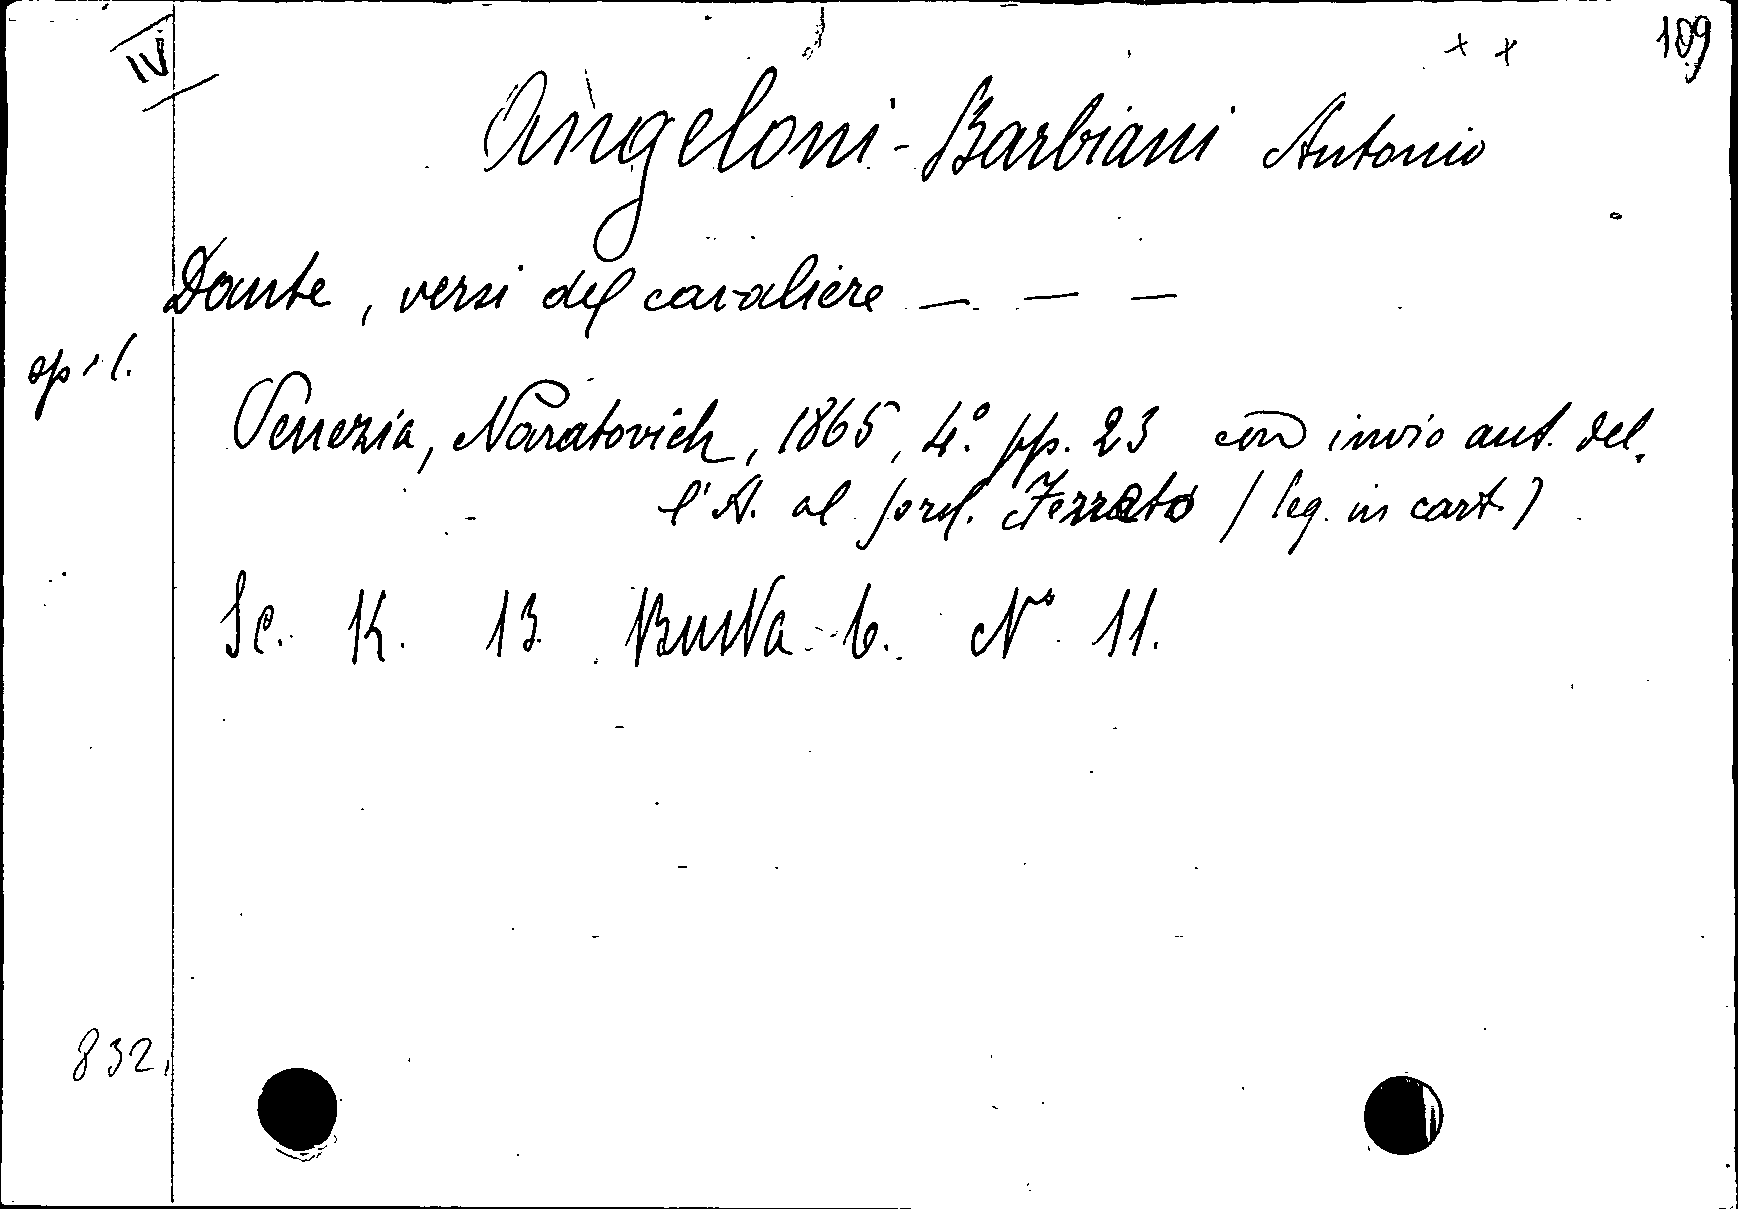 IV
+ +
109
Angeloni - Barbiani Antonio
Dante, versi del cavaliere — — —
Venezia, Naratovich, 1865, 4.° pp. 23 con invio aut. del-
l'A. al prof. Ferrato (leg. in cart.)
Sc. K. 13 Busta 6. N° 11.
832.